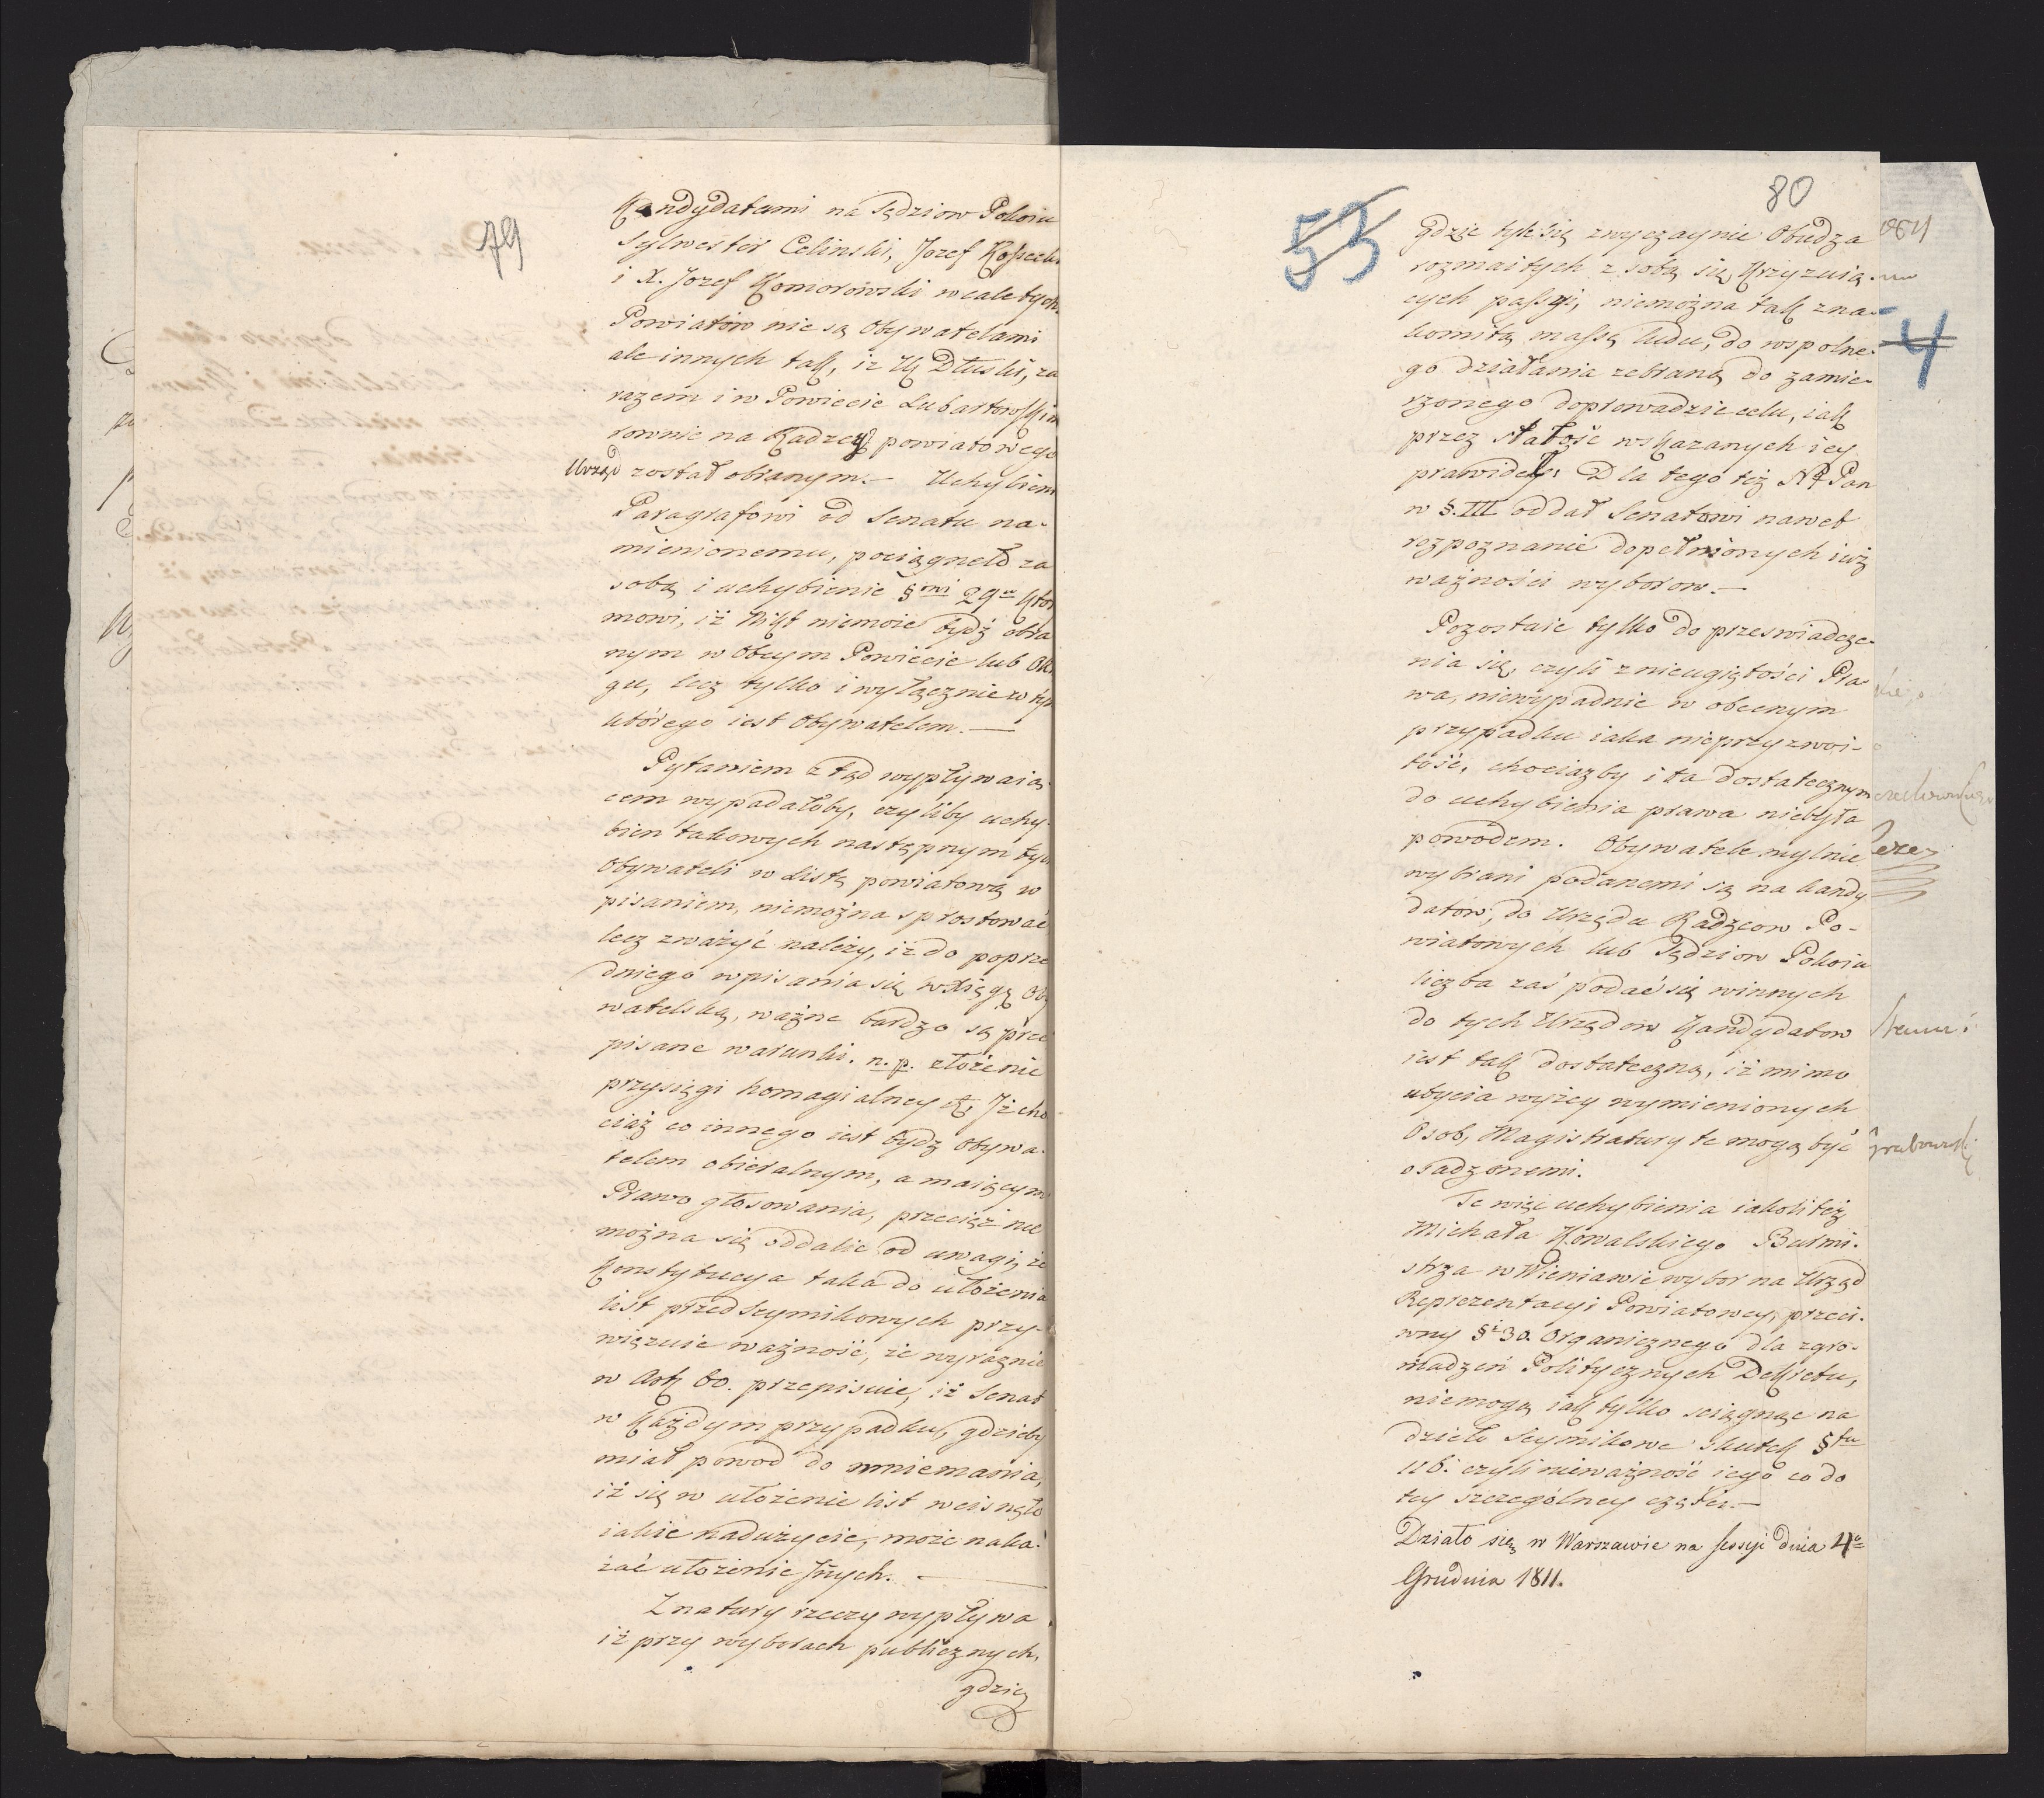 79
Kandydatami na Sędziow Pokoiu
Sylwester Celinski, Jozef
i X. Jozef Komorowski wcale tych
Powiatów nie są Obywatelami
ale innych tak, iż Dłuski, za
razem i w Powiecie Lubartowskim
rownie na Radzcę powiatowego
Urząd został obranym. — Uchybienie
Paragrafowi od Senatu na-
mienionemu, pociągneło za
sobą i uchybienie §owi 29n Któr
mowi, iż Nikt niemoże bydź obra
nym w Obcym Powiecie lub Okr
gu, lecz tylko i wyłącznie w tym
którego iest Obywatelem. —
Pytaniem ztąd wypływaią-
cem wypadałoby, czyliby uchy-
bien takowych następnym tych
Obywateli w Listę powiatową w
pisaniem, niemożna sprostować
lecz zważyć należy, iż do poprze
dniego wpisania się w Xięgę Oby
watelską, ważne bardzo są prze
pisane warunki. n. p. złożenie
przysięgi homagialney etc Iż cho
ciaż co innego iest bydź Obywa-
telem obieralnym, a maiącym
Prawo głosowania, przecież nie
można się oddalić od uwagi, że
Konstytucya taka do ułożenia
list przedseymikowych przy-
więzuie ważność, że wyraznie
w Art 60. przepisuie, iż Senat
w każdym przypadku, gdzieby
miał powod do mniemania,
iż się w ułożenie list wcisnęło
iakie nadużycie, może naka-
zać ułożenie Inych. —
Z natury rzeczy wypływa
iż przy wyborach publicznych,
gdzie
53
80
gdzie tyle się zwyczaynie Obudza
rozmaitych z sobą się Krzyżuią-
cych passyi, niemożna tak zna-
komitą massę ludu, do wspolne-
go działania zebraną do zamie-
rzonego doprowadzić celu, iak
przez Stałość wskazanych iey
prawideł. Dla tego też NPan
w §. III oddał Senatowi nawet
rozpoznanie dopełnionych iuż
ważności wyborow. —
Pozostaie tylko do przeswiadcze-
nia się, czyli z nieugiętości Pra-
wa, niewypadnie w obecnym
przypadku iaka nieprzyzwoi-
tość, chociażby i ta dostatecznym
do uchybienia prawa niebyła
powodem. Obywatele mylnie
wybrani podanemi są na kandy
datów, do Urzędu Radzcow Po-
wiatowych lub Sędziow Pokoiu
liczba zaś podać się winnych
do tych Urzędow Kandydatow
iest tak dostateczną, iż mimo
ubycia wyżey wymienionych
Osob, Magistratury te mogą być
osadzonemi.
Te więc uchybienia iakoli też
Michała Kowalskiego Burmi-
strza w Wieniawie wybor na Urząd
Reprezentacyi Powiatowey, przeci-
wny §i 30. Organicznego dla zgro-
madzeń Politycznych Dekretu,
niemogą iak tylko sciągnąc na
dzieło Seymikowe skutek §fu
116. czyli nieważność iego co do
tey szczególney części. —
Działo się w Warszawie na sessyi dnia 4o
Grudnia 1811.
4
Grabowski